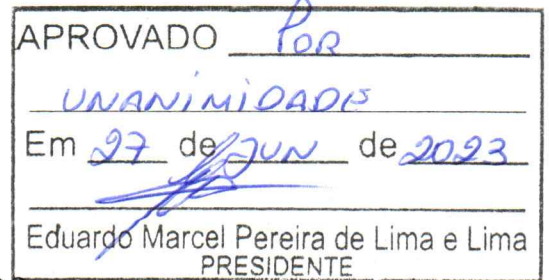 APROVADO POR
UNANIMIDADE
Em 27 de JUN de 2023
Eduardo Marcel Pereira de Lima e Lima
PRESIDENTE